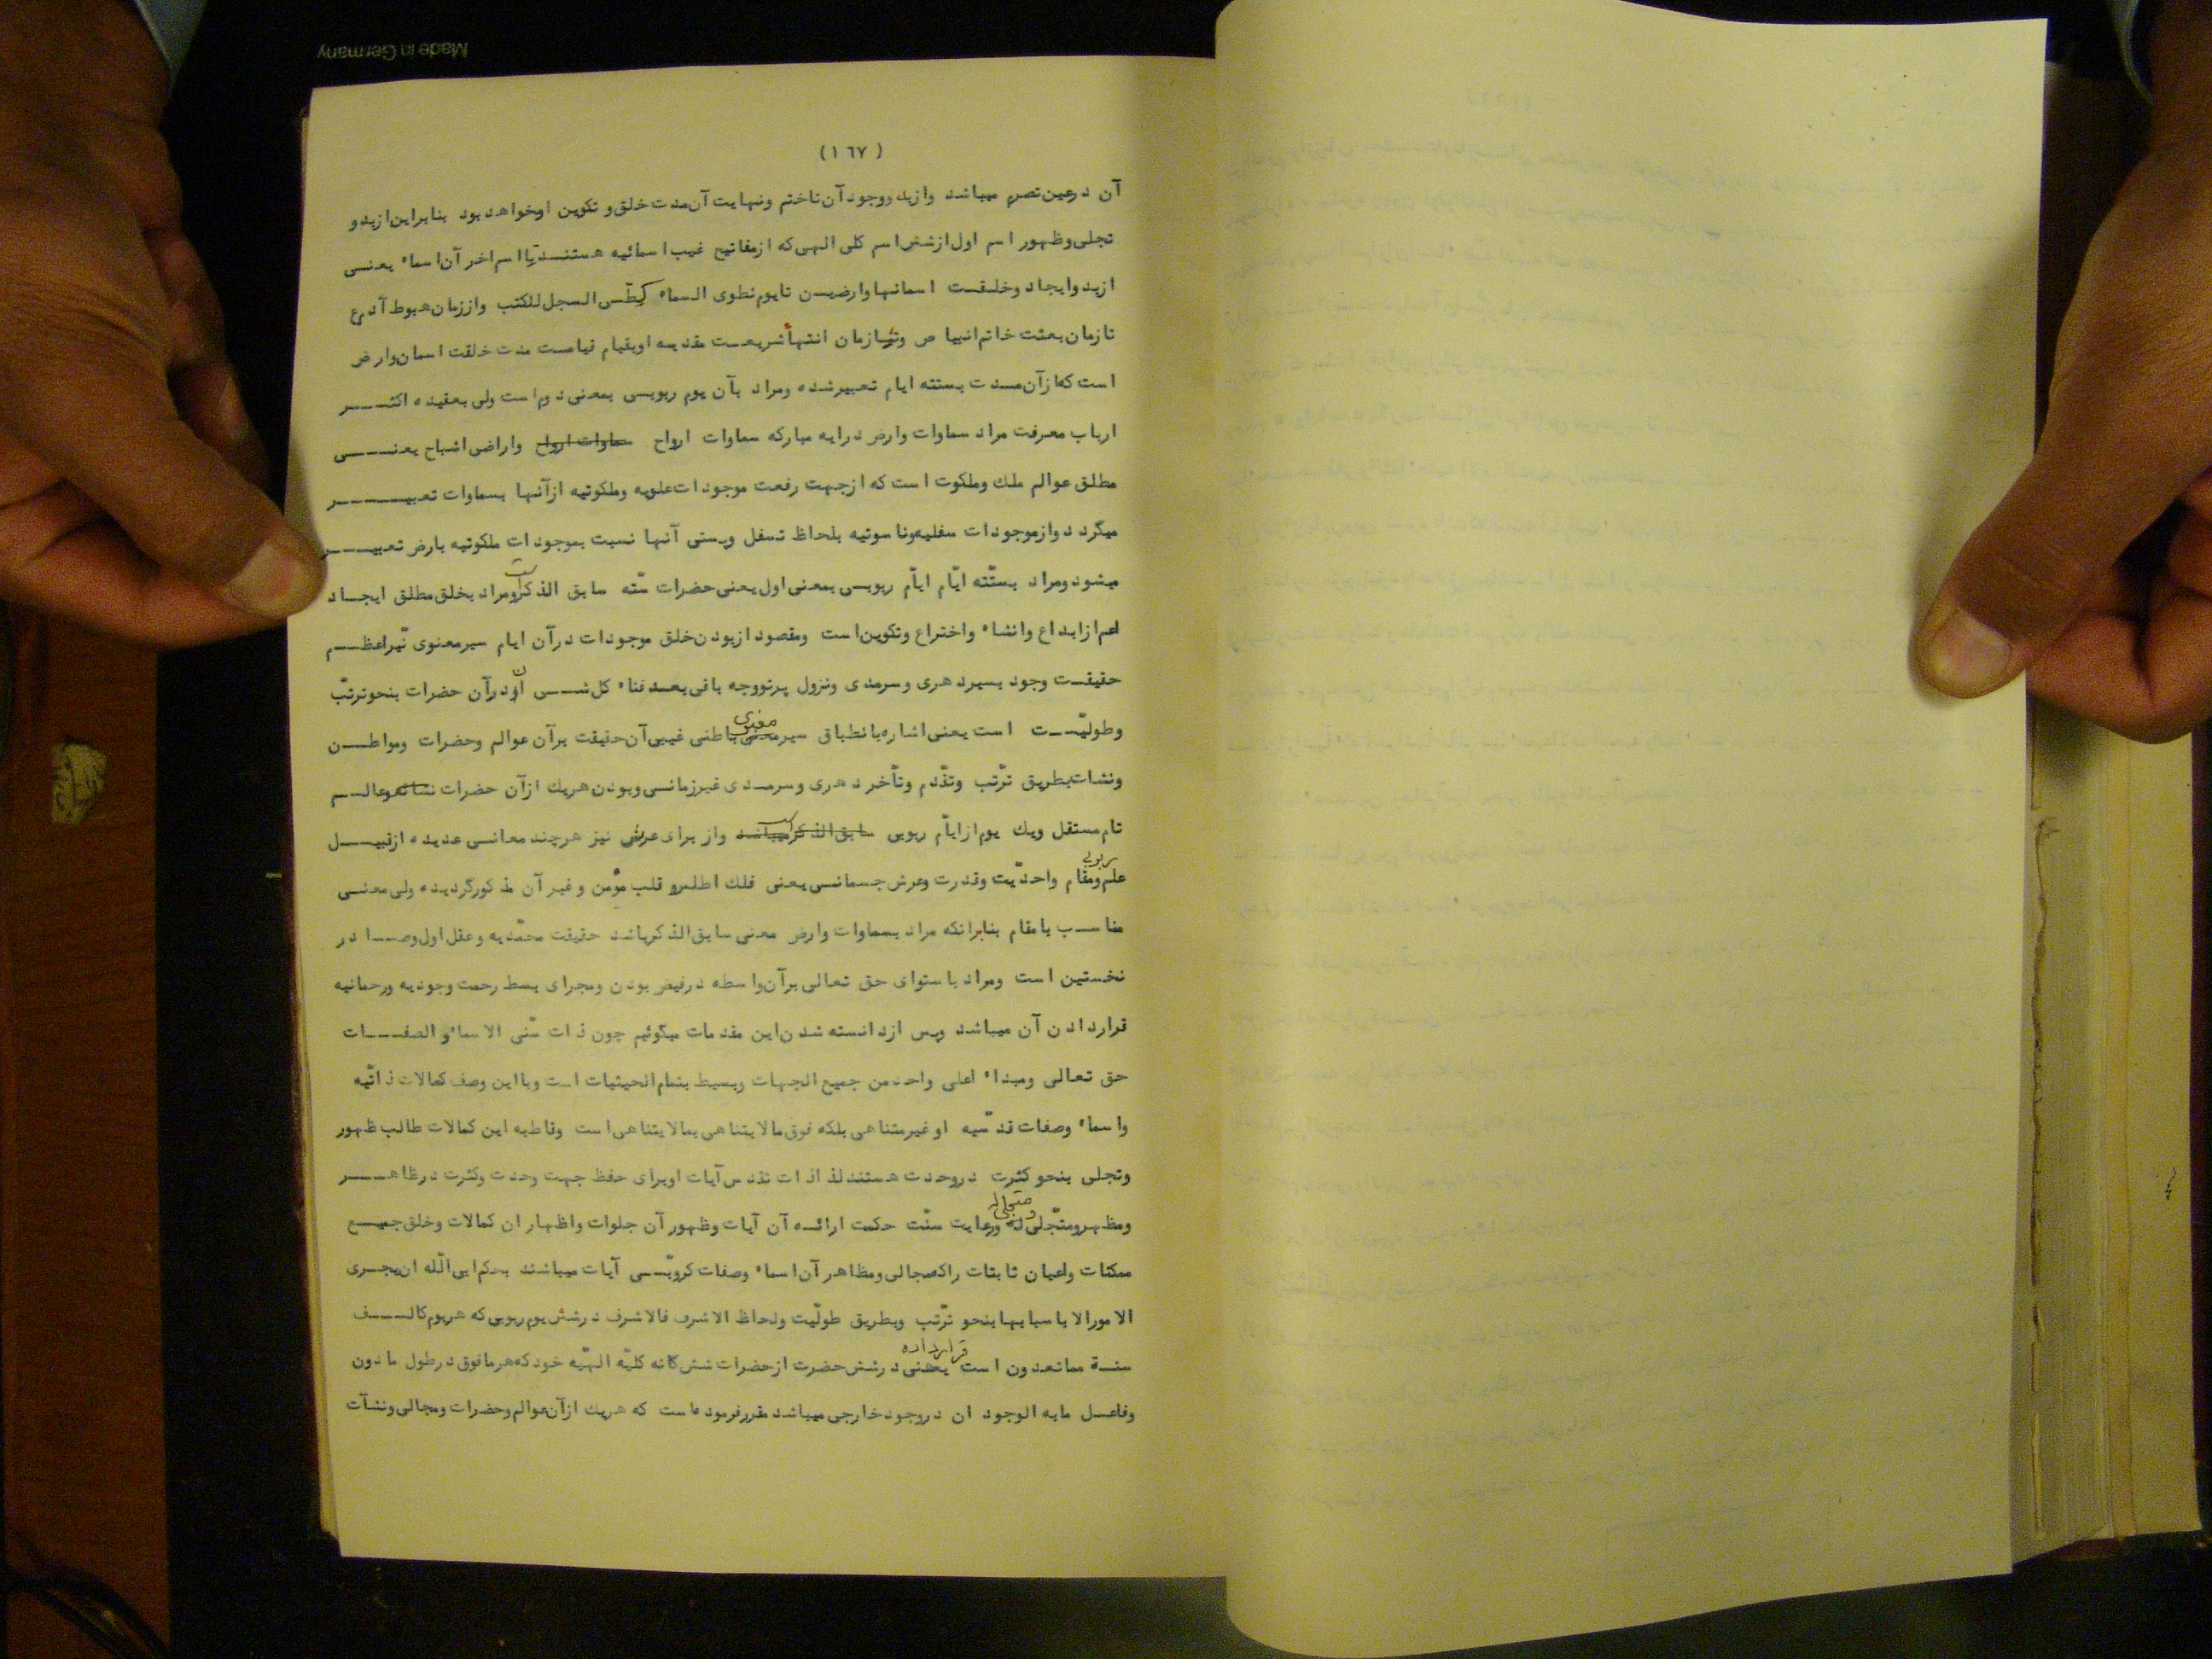 Made in Germany
(١٦٧)
آن درعین تصرم میباشد وازبد ووجود آن تاختم ونهایت آن مدت خلق و تکوین اوخواهد بود بنابراین ازبدو
تجلی وظهور اسم اول ازشش اسم کلی الهی که ازمفاتیح غیب اسمائیه هستند تا اسم اخر آن اسماء یعنی
ازبد وایجاد وخلقت اسمانها وارضین تایوم نطوی السماء کطی السجل للکتب واززمان هبوط آدم ع
تازمان بعثت خاتم انبیا ص وتا زمان انتهأ شریعت مقدسه اوبقیام قیامت مدت خلقت اسمان وارض
است که ازآن مدت بستته ایام تعبیرشده ومراد بآن یوم ربوبی بمعنی دوم است ولی بعقیده اکثر
ارباب معرفت مراد سماوات وارض درایه مبارکه سماوات ارواح سماوات ارواح واراضی اشباح یعنی
مطلق عوالم ملك وملکوت است که ازجهت رفعت موجودات علویه وملکوتیه ازآنها بسماوات تعبیر
میگردد وازموجودات سفلیه وناسوتیه بلحاظ تسفل وپستی آنها نسبت بموجودات ملکوتیه بارض تعبیر
میشود ومراد بستّته ایّام ایاّم ربوبی بمعنی اول یعنی حضرات ستّه سابق الذکر است ومراد بخلق مطلق ایجاد
اعم ازابداع وانشاء واختراع وتکوین است ومقصود ازبودن خلق موجودات درآن ایام سیرمعنوی نیّراعظم
حقیقت وجود بسیردهری وسرمدی ونزول پرتووجه باقی بعد فناء کل شی آن درآن حضرات بنحو ترتّب
وطولیّت است یعنی اشاره بانطباق سیر معنوی باطنی غیبی آن حقیقت برآن عوالم وحضرات ومواطن
ونشات بطریق ترّتب وتقّدم وتأخر دهری وسرمدی غیرزمانی وبودن هریك ازآن حضرات نشأه وعالم
تام مستقل ویك یوم ازایاّم ربوبی سابق الذکر میباشد واز برای عرش نیز هرچند معانی عدیده ازقبیل
علم ومقام ربوبی واحدّیت وقدرت وعرش جسمانی یعنی فلك اطلس و قلب مؤمن وغیر آن مذکورگردیده ولی معنی
مناسب بامقام بنابرانکه مراد بسماوات وارض معنی سابق الذکرباشد حقیقت محمّدیه وعقل اول وصادر
نخستین است ومراد باستوای حق تعالی برآن واسطه درفیض بودن ومجرای بسط رحمت وجودیه ورحمانیه
قراردادن آن میباشد وپس ازدانسته شدن این مقدمات میگوئیم چون ذات سّنی الاسماء و الصفات
حق تعالی ومبداء اعلی واحد من جمیع الجهات وبسیط بتمام الحیثیات است وبااین وصف کمالات ذاتّیه
واسماء وصفات قدسّیه او غیرمتناهی بلکه فوق مالایتناهی بمالایتناهی است وقاطبه این کمالات طالب ظهور
وتجلی بنحو کثرت دروحدت هستند لذا ذات تقدس آیات اوبرای حفظ جهت وحدت وکثرت درظاهر
ومظهر ومتّجلی له ومتجلی له ورعایت سنّت حکمت ارائه آن آیات وظهور آن جلوات واظهار ان کمالات وخلق جمیع
ممکنات واعیان ثابتات راکه مجالی ومظاهر آن اسماء وصفات کروبّی آیات میباشند بحکم ابی الّله ان یجری
الامور الا باسبابها بنحو ترّتب وبطریق طولّیت ولحاظ الاشرف فالاشرف درشش یوم ربوبی که هریوم کالف
سنة مماتعدون است قرارداده یعنی درشش حضرت ازحضرات شش گانه کلیّه الهیّه خود که هرمافوق درطول مادون
وفاعل مابه الوجود ان دروجود خارجی میباشد مقرر فرموده است که هریك ازآن عوالم وحضرات ومجالی ونشآت